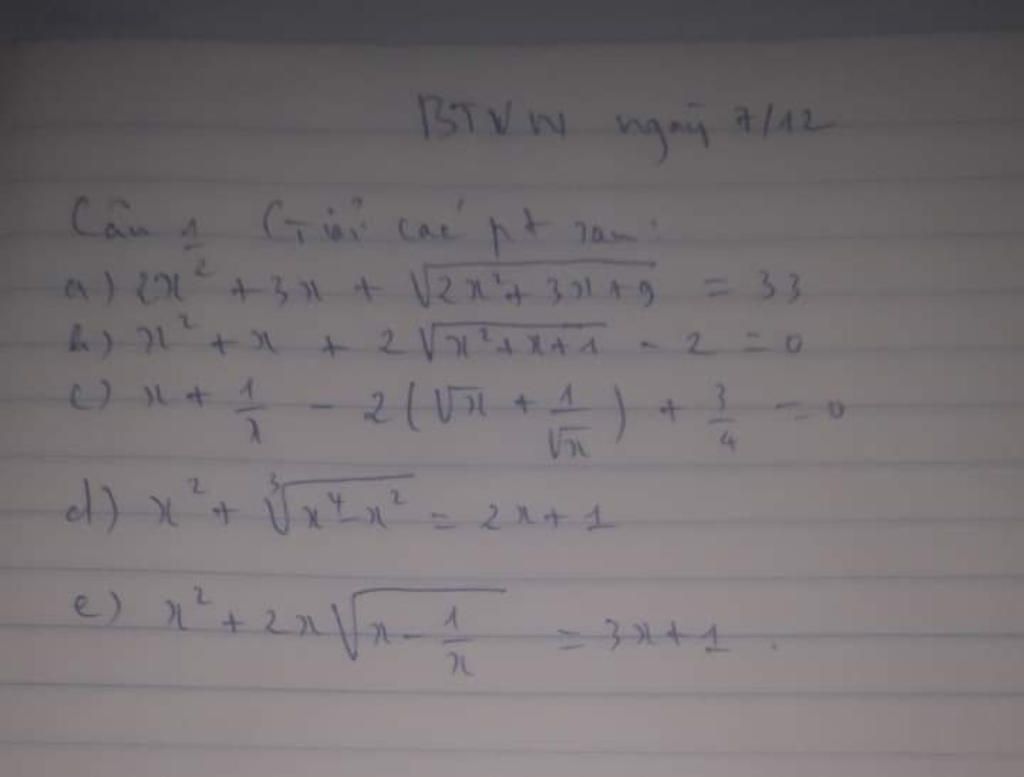 BTVN ngày 7/12
Câu 1 Giải các pt sau:
a) 2x² + 3x + √(2x² + 3x + 9) = 33
b) x² + x + 2√(x² + x + 1) - 2 = 0
c) x + 1/x - 2(√x + 1/√x) + 3/4 = 0
d) x² + ∛(x⁴ - x²) = 2x + 1
e) x² + 2x√(x - 1/x) = 3x + 1.